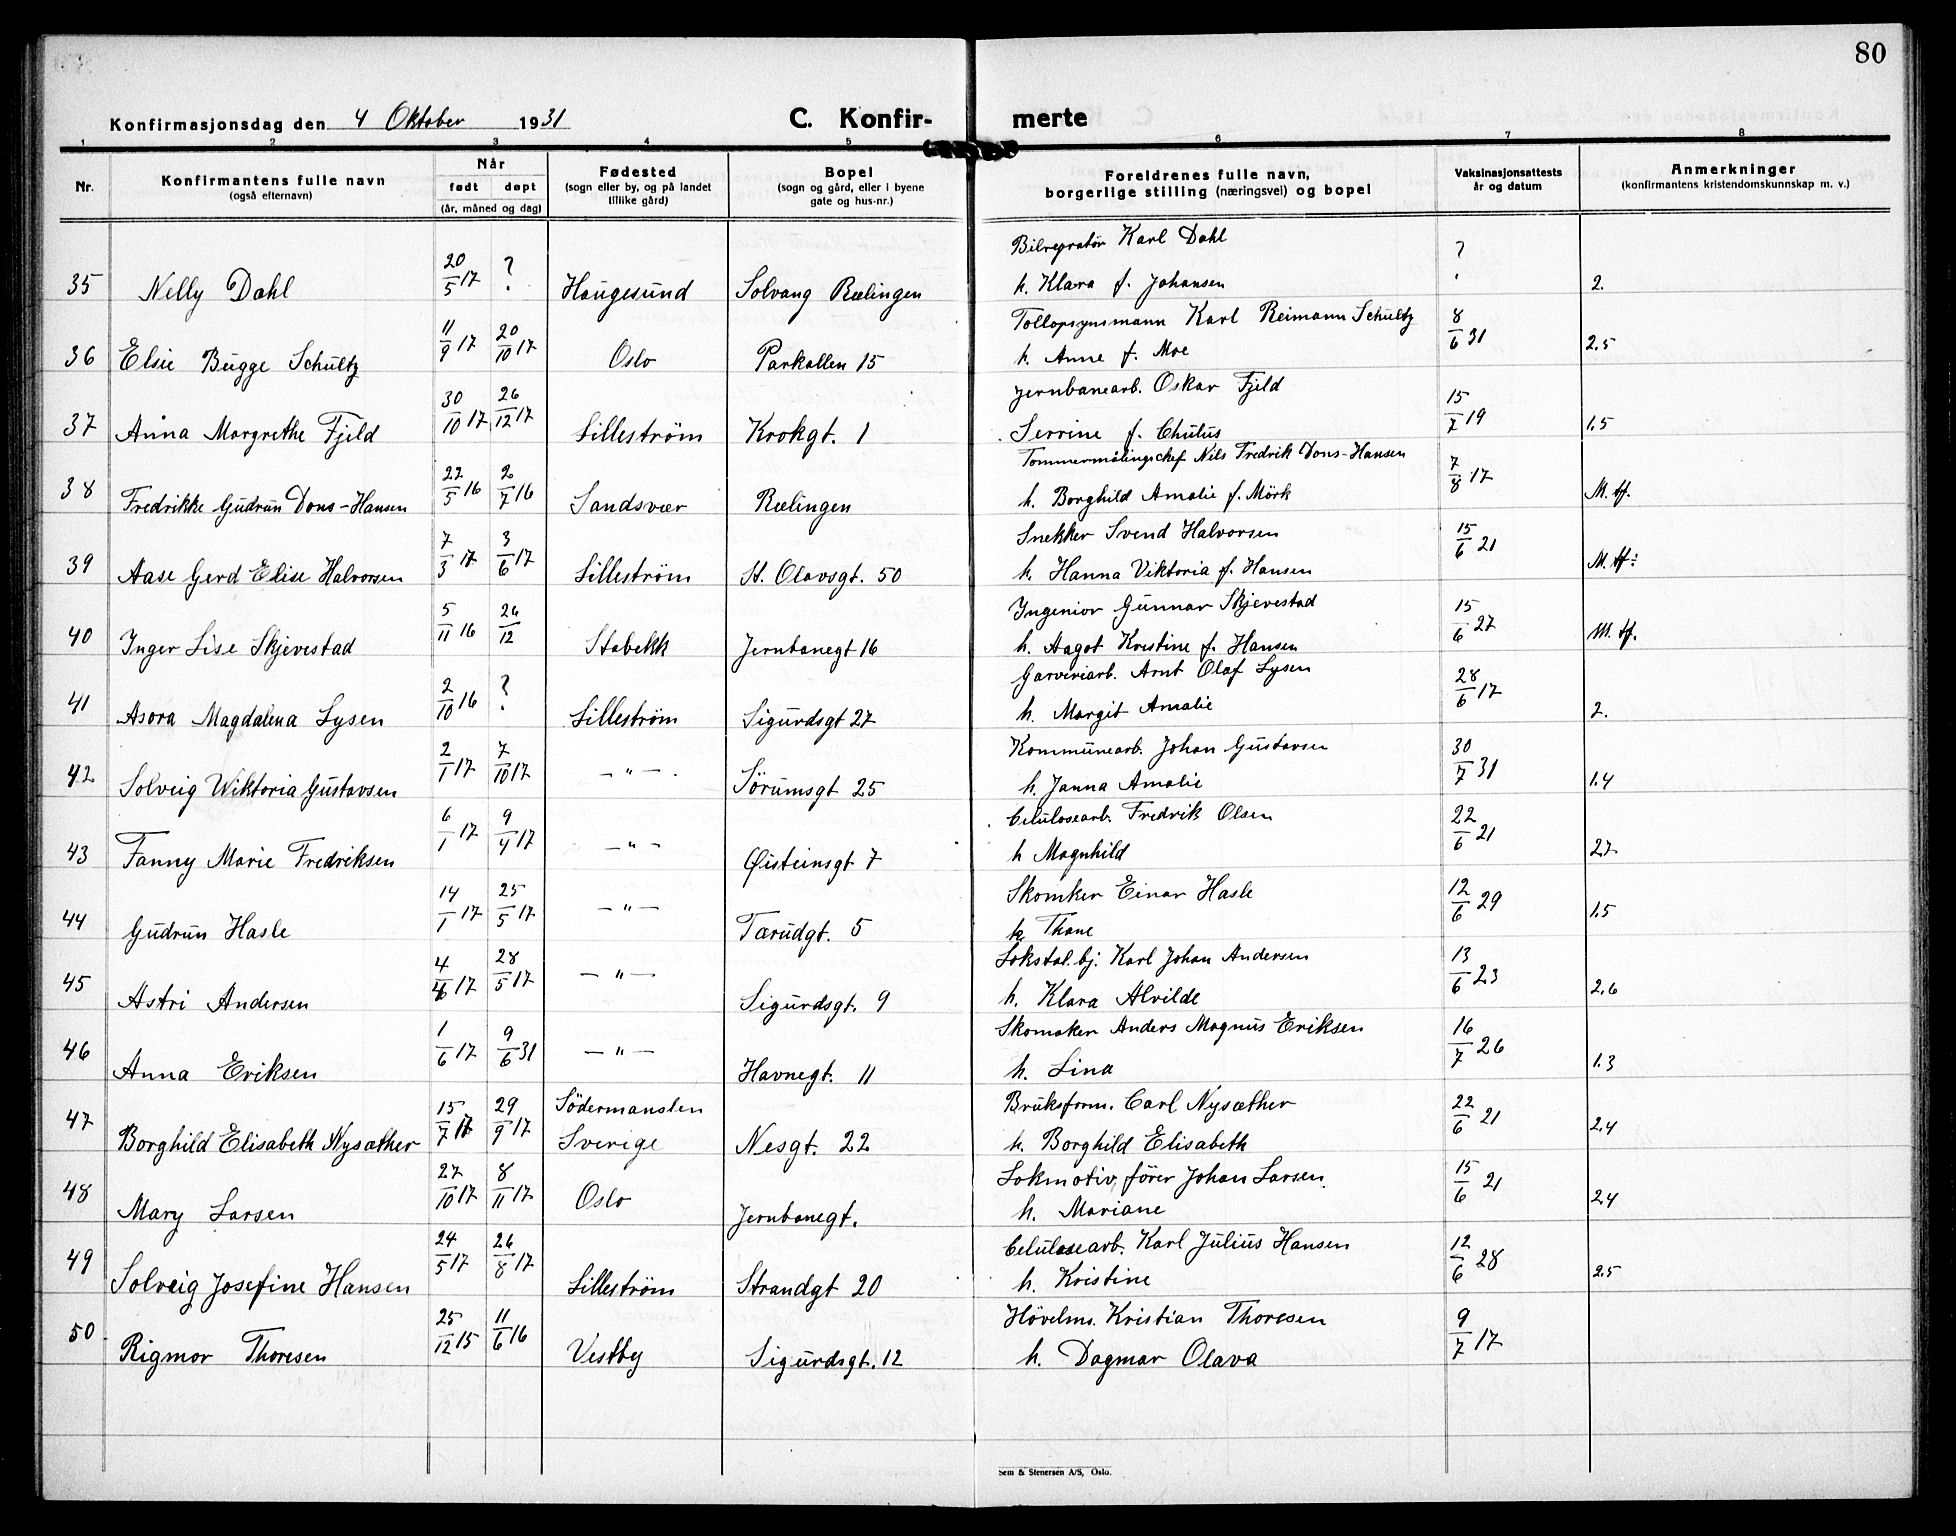 80
Konfirmasjonsdag den 4 Oktober 1931
C. Konfir- merte
1 2 3 4 5 6 7 8
Nr.
Konfirmantens fulle navn
(også efternavn)
Når
født døpt
(år, måned og dag)
Fødested
(sogn eller by, og på landet
tillike gård)
Bopel
(sogn og gård, eller i byene
gate og hus-nr.)
Foreldrenes fulle navn,
borgerlige stilling (næringsvei) og bopel
Vaksinasjonsattests
år og datum
Anmerkninger
(konfirmantens kristendomskunnskap m. v.)
Bilrepratør Karl Dahl
35 Nelly Dahl 20/5 17 ? Haugesund Solvang Rælingen h. Klara f. Johansen ? 2.
Tollopsynsmann Karl Reimann Schultz
36 Elsie Bugge Schultz 11/9 17 20/10 17 Oslo Parkallen 15 h. Anne f. Moe 8/6 31 2.5
Jernbanearb. Oskar Fjeld
37 Anna Margrethe Fjeld 30/10 17 26/12 17 Lilleström Krokgt. 1 Serrine f. Chulus 15/7 19 1.5
Tommermålingschef Nils Fredrik Dons-Hansen
38 Fredrikke Gudrun Dons-Hansen 22/5 16 2/7 16 Sandsvær Rælingen h. Borghild Amalie f. Mörk 7/8 17 M. tf.
Snekker Svend Halvorsen
39 Aase Gerd Elise Halvorsen 7/3 17 3/6 17 Lilleström St. Olavsgt. 50 h. Hanna Viktoria f. Hansen 15/6 21 M. tf.
Ingeniør Gunnar Skjevestad
40 Inger Lise Skjevestad 5/11 16 26/12 Stabekk Jernbanegt 16 h. Aagot Kristine f. Hansen 15/6 27 M. tf.
Garveriarb. Arnt Olaf Lysen
41 Asora Magdalena Lysen 2/10 16 ? Lilleström Sigurdsgt 27 h. Margit Amalie 28/6 17 2.
Kommunearb. Johan Gustavsen
42 Solveig Wiktoria Gustavsen 2/1 17 7/10 17 — " — Sörumsgt 25 h. Janna Amalie 30/7 31 1.4
Celulosearb. Fredrik Olsen
43 Fanny Marie Fredriksen 6/1 17 9/4 17 — " — Øisteinsgt 7 h Magnhild 22/6 21 2.7
Skomker Einar Hasle
44 Gudrun Hasle 14/1 17 25/5 17 — " — Tærudgt. 5 h Thane 12/6 29 1.5
Lokstal.bj. Karl Johan Andersen
45 Astri Andersen 4/4 17 28/5 17 — " — Sigurdsgt. 9 h. Klara Alvilde 13/6 23 2.6
Skomaker Anders Magnus Eriksen
46 Anna Eriksen 1/6 17 9/6 31 — " — Havnegt. 11 h. Lina 16/7 26 1.3
Södermanslen Bruksform. Carl Nysæther
47 Borghild Elisabeth Nysæther 15/7 17 29/9 17 Sverige Nesgt. 22 h. Borghild Elisabeth 22/6 21 2.4
Lokmotivförer Johan Larsen
48 Mary Larsen 27/10 17 8/11 17 Oslo Jernbanegt. h. Mariane 15/6 21 2.4
Celulosearb. Karl Julius Hansen
49 Solveig Josefine Hansen 24/5 17 26/8 17 Lilleström Strandgt 20 h. Kristine 12/6 28 2.5
Hövelms. Kristian Thoresen
50 Rigmor Thoresen 25/12 15 11/6 16 Vestby Sigurdsgt. 12 h. Dagmar Olava 9/7 17
Sem & Stenersen A/S, Oslo.